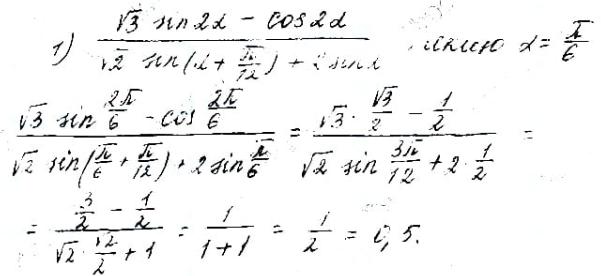 1) (√3 sin2α - cos2α) / (√2 sin(α + π/12) + 2 sinα) α = π/6
(√3 sin 2π/6 - cos 2π/6) / (√2 sin(π/6 + π/12) + 2 sin π/6) = (√3 · √3/2 - 1/2) / (√2 sin 3π/12 + 2 · 1/2) =
= (3/2 - 1/2) / (√2 · √2/2 + 1) = 1/(1+1) = 1/2 = 0,5.